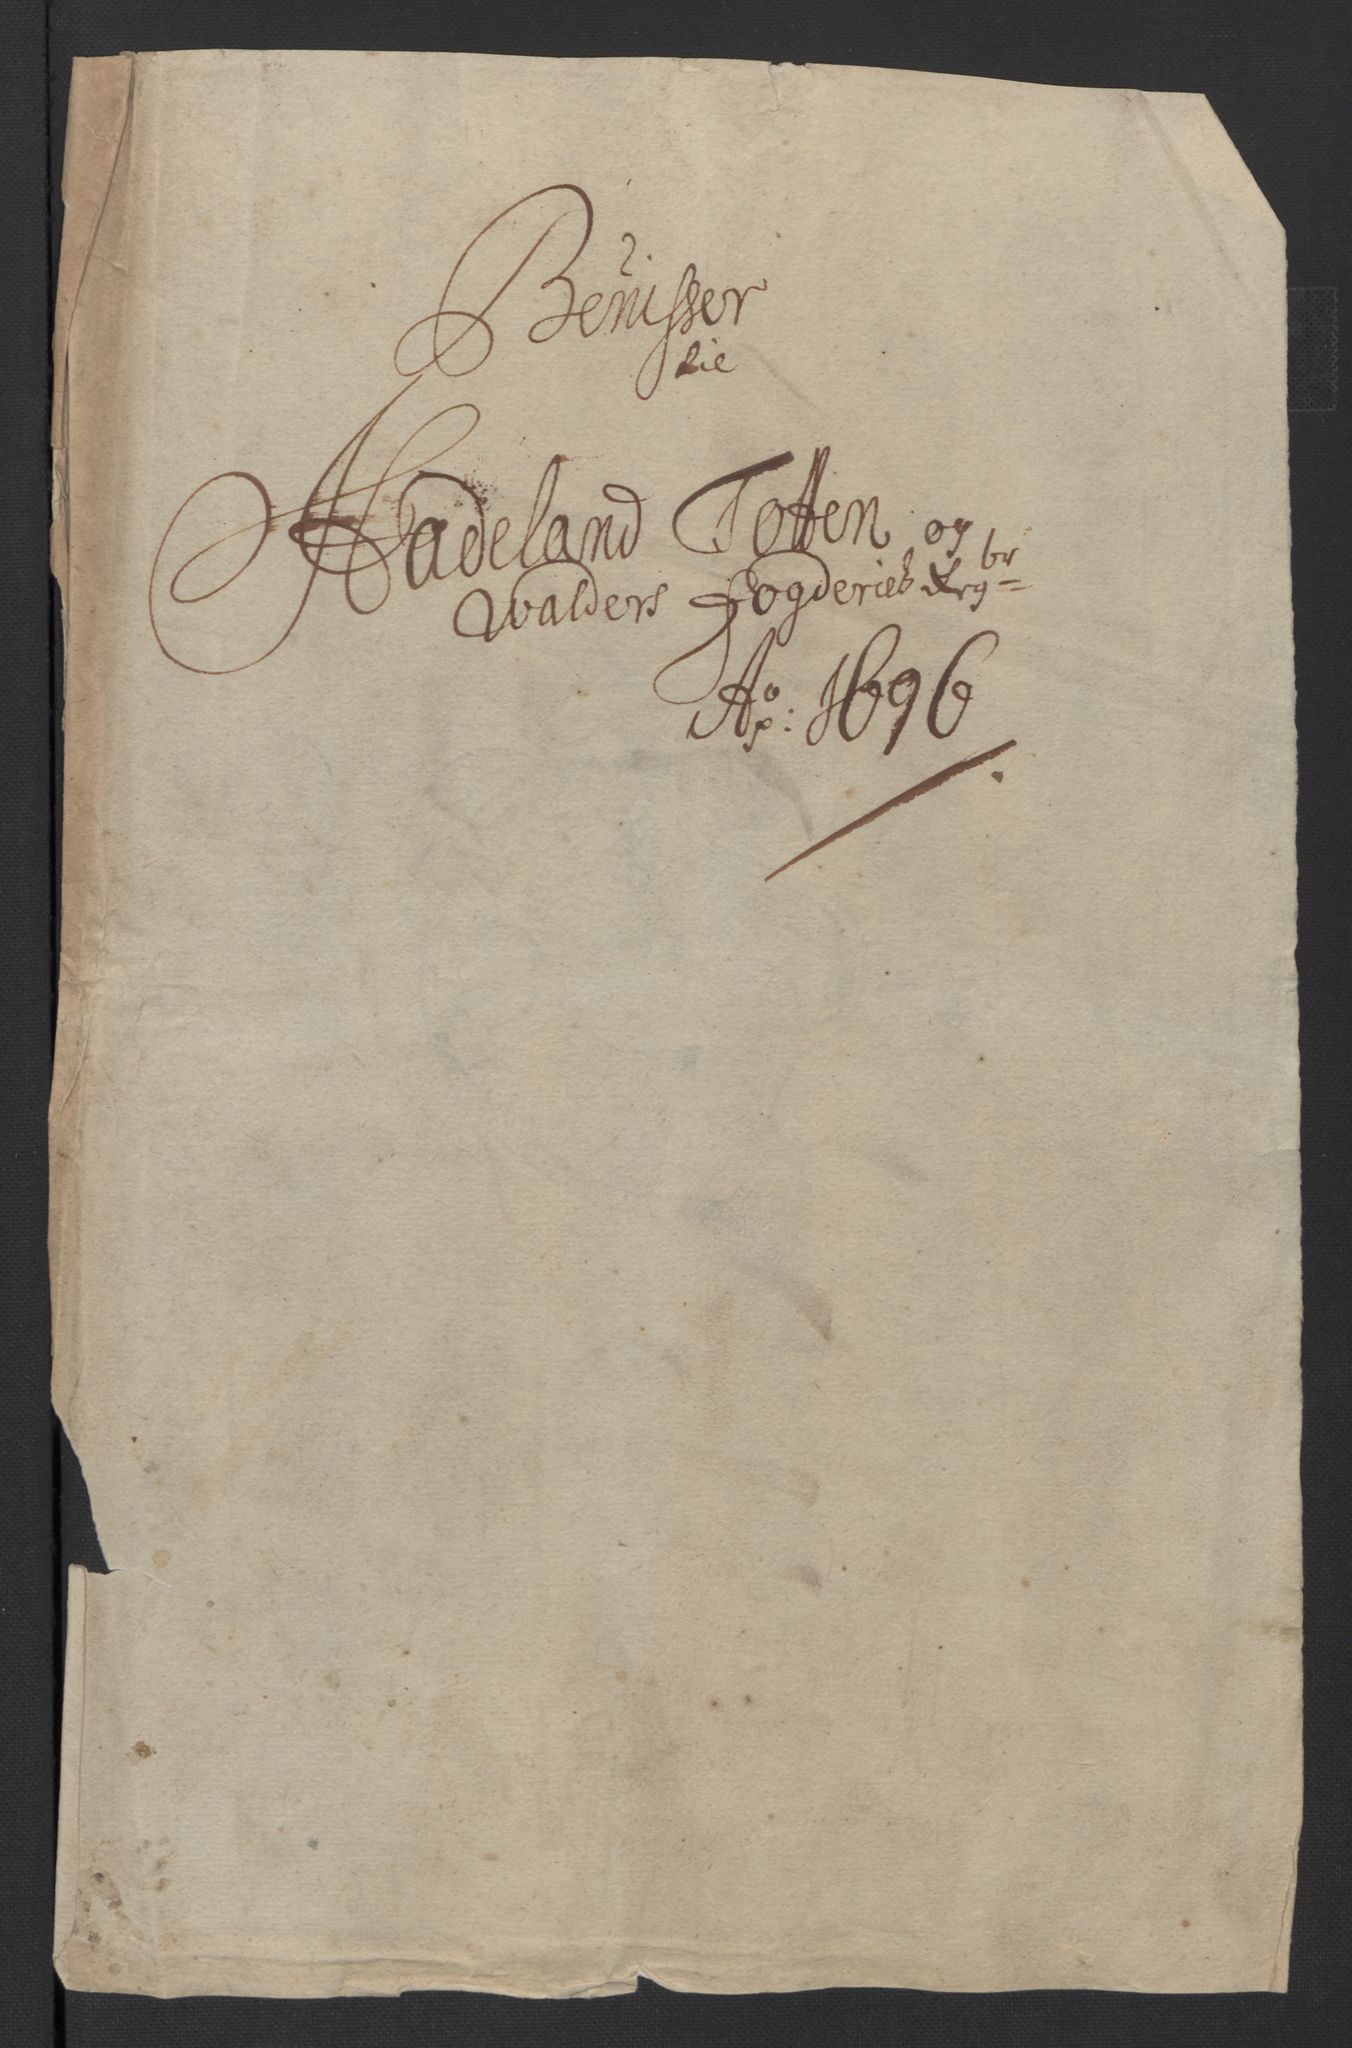 Bevisser
til
Hadeland Totten og
Walders Fogderies Regbr
Ao: 1696